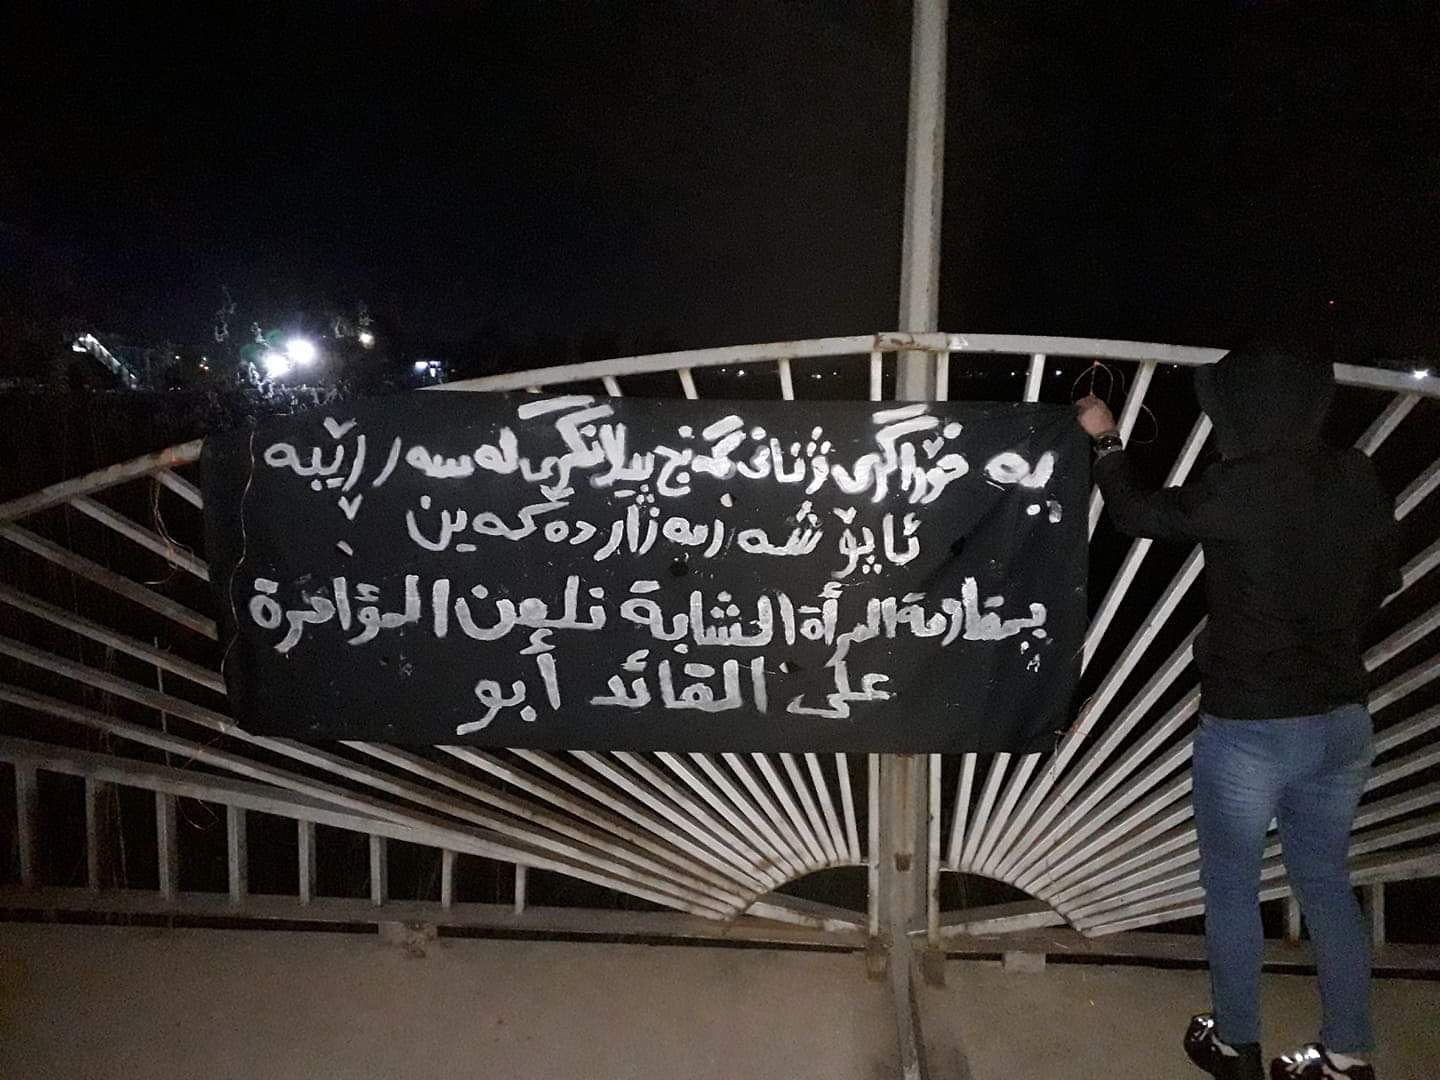 بە خۆڕاگری ژنانی گەنج پیلانگری لە سەر ڕێبە
ئاپۆ شەرمەزار دەکەین
بمقاومة المرأة الشابة نلعن المؤامرة
على القائد أبو